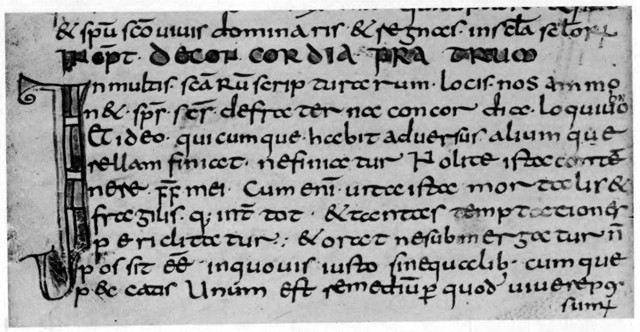 & spū scō vivis dominaris & regnas. in scla sclor
INCPT. DE CON CORDIA FRA TRUM
In multis. scaRum scrip turarum. locis. nos ammo
n& sps scs. de fra ter na concor dia.
Et ideo. qui cum que. habit adversus alium que
rellam finiat. ne finia tur Nolite ista contē
nere mei. Cum eni vita ista mor ta lis &
fragilis. q; int tot. & tantas temptationes
periclita tur; & orat ne submerga tur n̄
pos sit eē in quovis iusto sine qualib. cum que
pec catis Unum est remediū p quod vivere pos
sum;